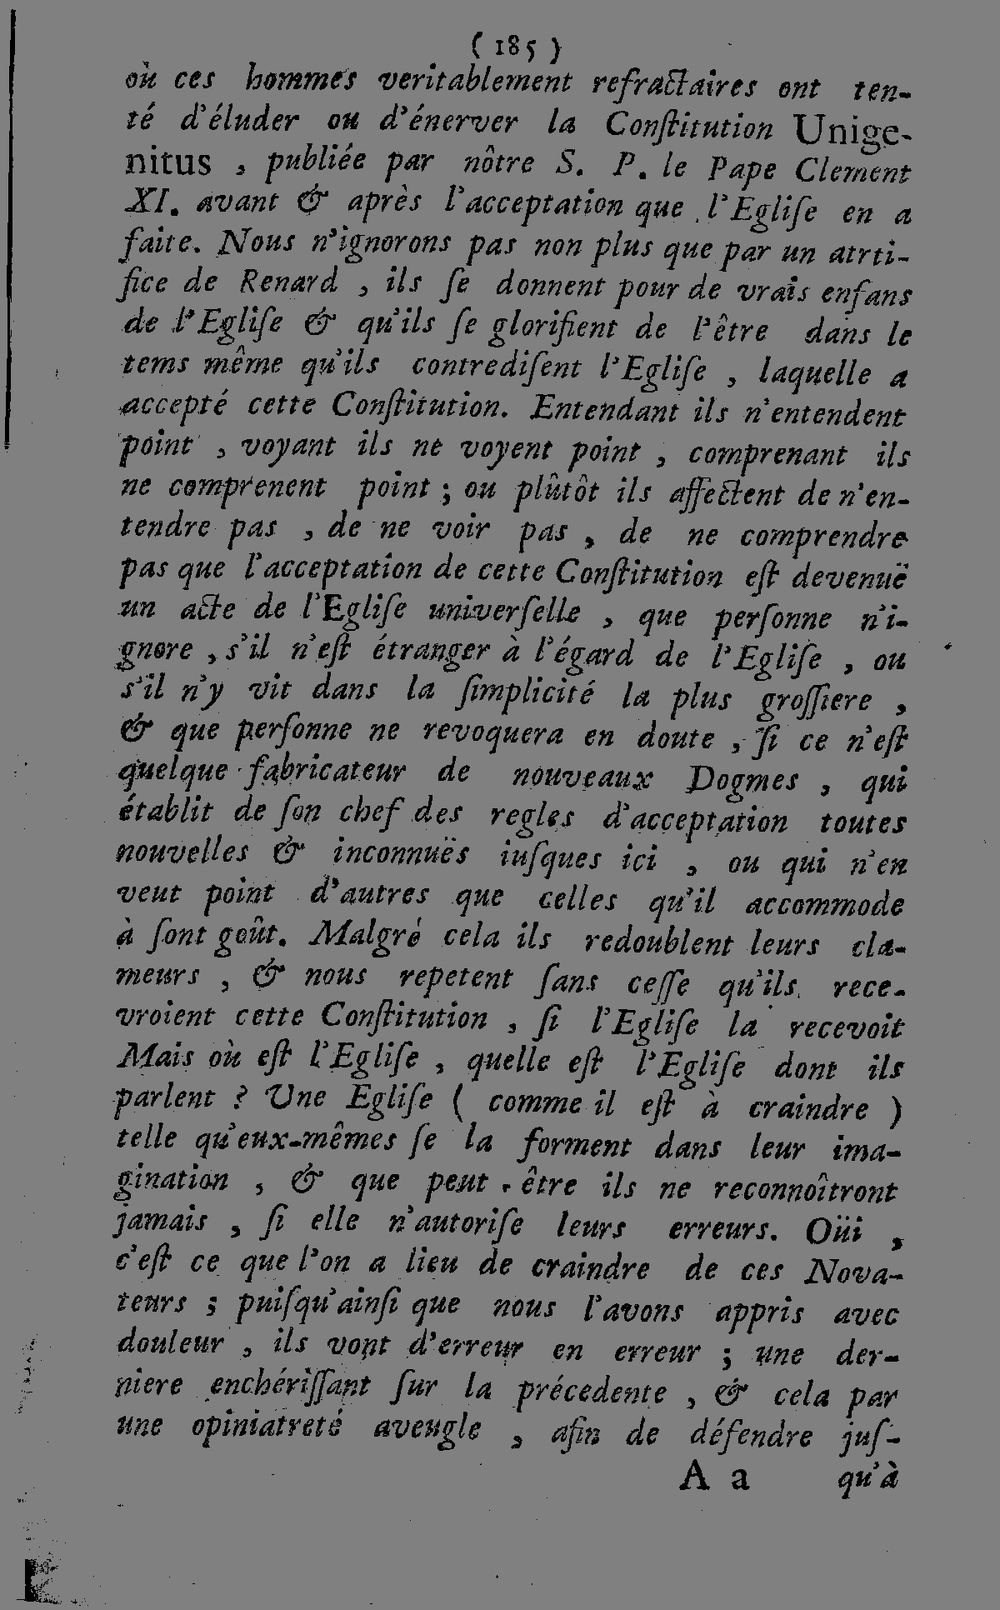 ( 185 )
où ces hommes veritablement refractaires ont ten-
té d'éluder ou d'énerver la Conſtitution Unige-
nitus , publiée par nôtre S. P. le Pape Clement
XI. avant & après l'acceptation que l'Egliſe en a
faite. Nous n'ignorons pas non plus que par un atrti-
fice de Renard , ils ſe donnent pour de vrais enfans
de l'Egliſe & qu'ils ſe glorifient de l'être dans le
tems même qu'ils contrediſent l'Egliſe , laquelle a
accepté cette Conſtitution. Entendant ils n'entendent
point , voyant ils ne voyent point , comprenant ils
ne comprenent point ; ou plûtôt ils affectent de n'en-
tendre pas , de ne voir pas , de ne comprendre
pas que l'acceptation de cette Conſtitution eſt devenuë
un acte de l'Egliſe univerſelle , que perſonne n'i-
gnore , s'il n'eſt étranger à l'égard de l'Egliſe , ou
s'il n'y vit dans la ſimplicité la plus groſſiere ,
& que perſonne ne revoquera en doute , ſi ce n'eſt
quelque fabricateur de nouveaux Dogmes , qui
établit de ſon chef des regles d'acceptation toutes
nouvelles & inconnuës iuſques ici , ou qui n'en
veut point d'autres que celles qu'il accommode
à ſont goût. Malgré cela ils redoublent leurs cla-
meurs , & nous repetent ſans ceſſe qu'ils rece-
vroient cette Conſtitution , ſi l'Egliſe la recevoit
Mais où eſt l'Egliſe , quelle eſt l'Egliſe dont ils
parlent ? Une Egliſe ( comme il eſt à craindre )
telle qu'eux-mêmes ſe la forment dans leur ima-
gination , & que peut-être ils ne reconnoîtront
jamais , ſi elle n'autoriſe leurs erreurs. Oüi ,
c'eſt ce que l'on a lieu de craindre de ces Nova-
teurs ; puiſqu'ainſi que nous l'avons appris avec
douleur , ils vont d'erreur en erreur ; une der-
niere enchériſſant ſur la précedente , & cela par
une opiniatreté aveugle , afin de défendre juſ-
A a qu'à